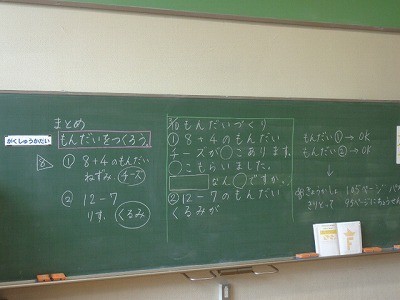 がくしゅうかだい
まとめ
もんだいをつくろう。
① 8+4のもんだい
ねずみ、チーズ
② 12-7
りす、くるみ
3/10 もんだいづくり
① 8+4のもんだい
チーズが○こあります。
○こもらいました。
なん○ですか。
② 12-7のもんだい
くるみが
もんだい①→OK
もんだい②→OK
きょうかしょ 105ページ
きりとって 99ページにちょうせん